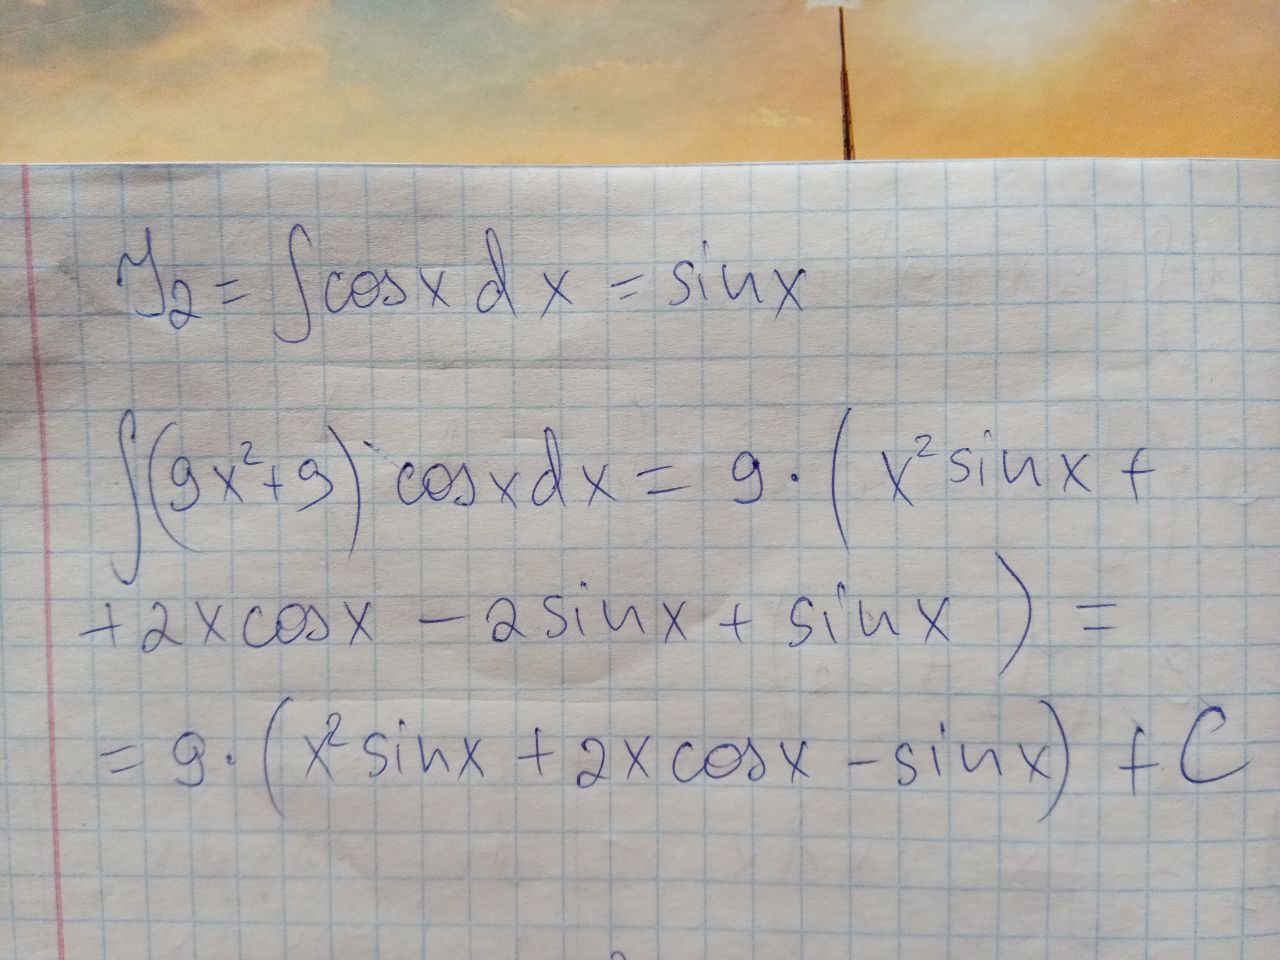 J₂ = ∫cosx dx = sinx
∫(9x²+9)·cosxdx = 9·(x²sinx +
+2xcosx − 2sinx + sinx) =
= 9·(x²sinx + 2xcosx − sinx) + C